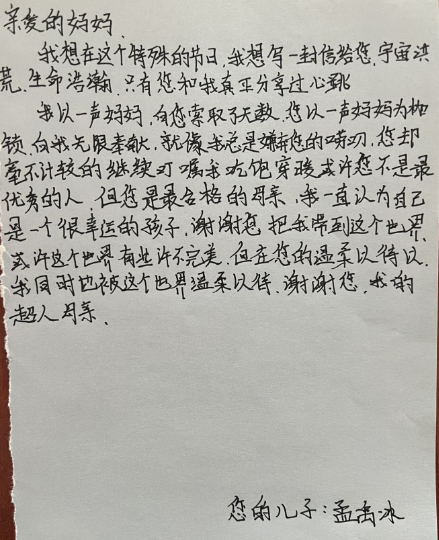 亲爱的妈妈、
我想在这个特殊的节日、我想写一封信给您、宇宙洪
荒、生命浩瀚、只有您和我真正分享过心跳
我以一声妈妈、向您索取了无数、您以一声妈妈为枷
锁、向我无限奉献、就像我总是嫌弃您的唠叨、您却
毫不计较的继续叮嘱我吃饱穿暖或许您不是最
优秀的人、但您是最合格的母亲、我一直认为自己
是一个很幸运的孩子、谢谢您、把我带到这个世界、
或许这个世界有些许不完美、但在您的温柔以待以、
我同时也被这个世界温柔以待、谢谢您、我的
超人母亲、
您的儿子：孟禹冰